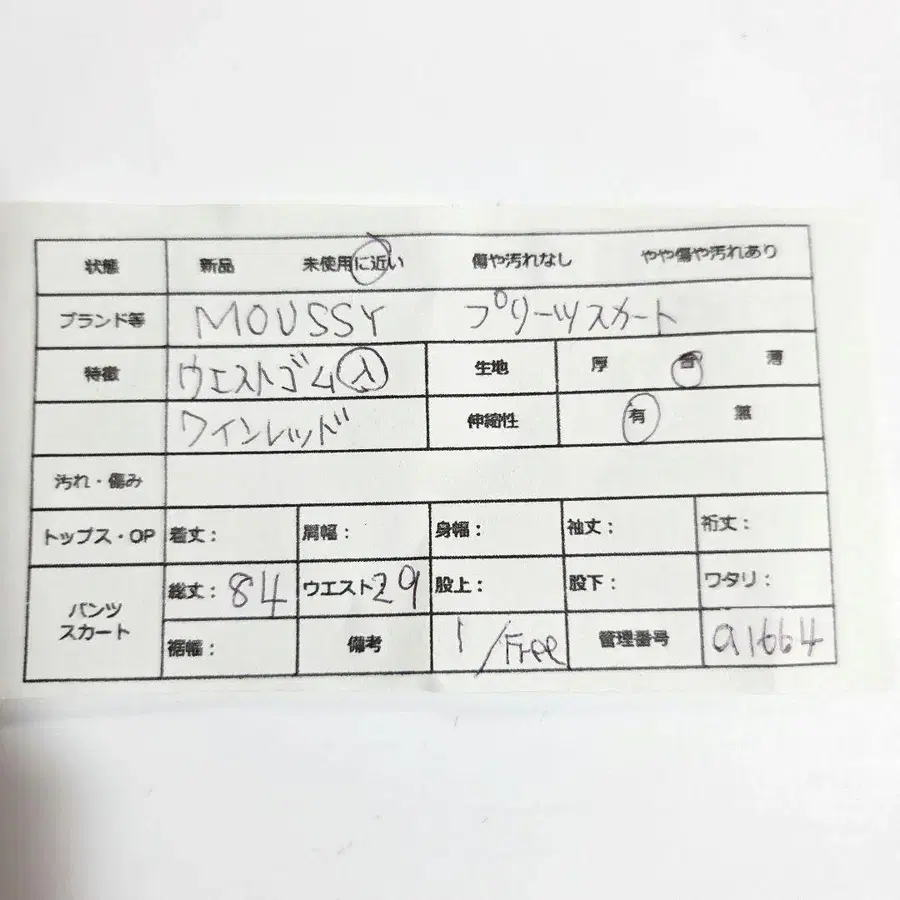 状態 新品 未使用に近い 傷や汚れなし やや傷や汚れあり
ブランド等 MOUSSY プリーツスカート
特徴 ウエストゴム入 生地 厚 普 薄
ワインレッド 伸縮性 有 無
汚れ・傷み
トップス・OP 着丈: 肩幅: 身幅: 袖丈: 裄丈:
パンツ スカート 総丈: 84 ウエスト: 29 股上: 股下: ワタリ:
裾幅: 備考 1/Free 管理番号 a1664